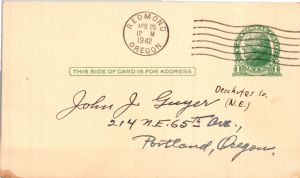 REDMOND
APR 26
12 M
1942
OREGON
THIS SIDE OF CARD IS FOR ADDRESS
Deschutes Co.
(N.E.)
John J. Guyer
214 N.E. 65th Ave.,
Portland, Oregon.